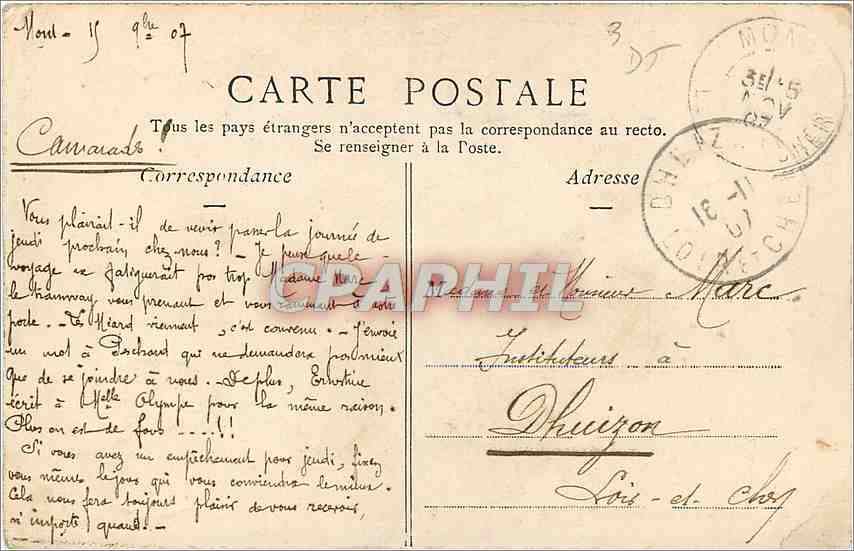 Mont - 15 9bre 07
3
DT
CARTE POSTALE
Tous les pays étrangers n'acceptent pas la correspondance au recto.
Se renseigner à la Poste.
Camarade !
Correspondance
Adresse
Vous plairait-il de venir passer la journée de
jeudi prochain chez nous? - Je pense que le
voyage ne fatiguerait pas trop Madame Marc,
le tramway vous prenant et vous ramenant à votre
porte. - Les Miard viennent, c'est convenu. - J'envoie
un mot à Pochard qui ne demandera pas mieux
que de se joindre à nous. - De plus, Ernestine
écrit à Melle Olympe pour la même raison.
Plus on est de fous -----!!
Si vous avez un empêchement pour jeudi, fixez
vous même le jour qui vous conviendra le mieux.
Cela nous fera toujours plaisir de vous recevoir,
n'importe quand. -
CPARPHIL
Madame et Monsieur Marc
Instituteurs à
Dhuizon
Loir-et-Cher
MON
NOV
07
DHUIZ
16 - 11
07
LOIR ET CHER